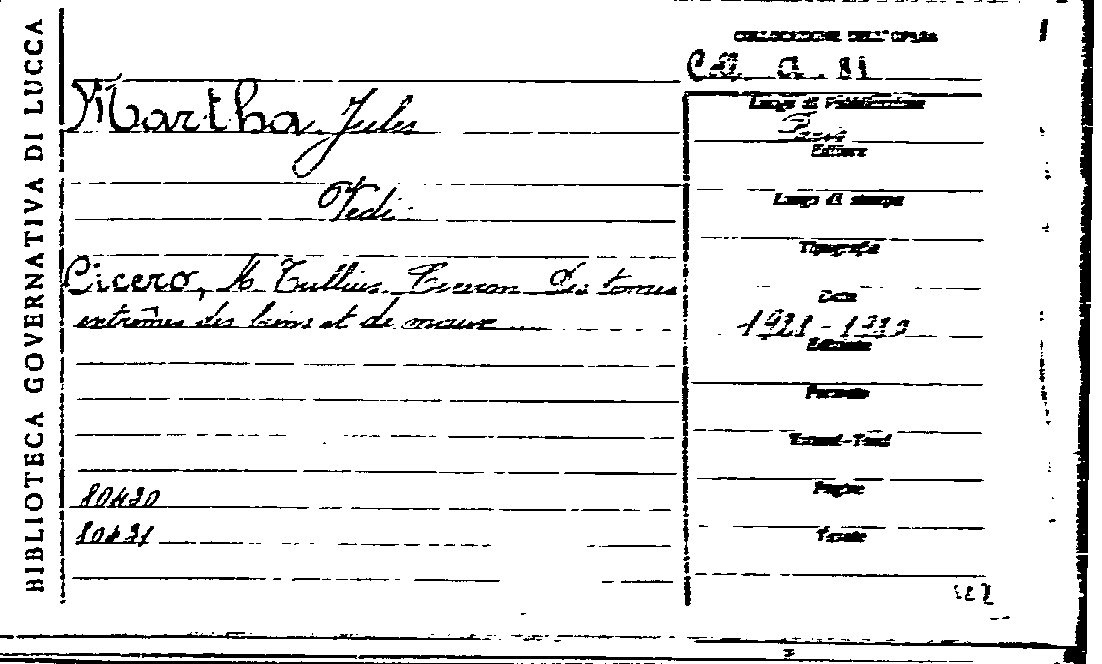 BIBLIOTECA GOVERNATIVA DI LUCCA
COLLOCAZIONE DELL'OPERA
Coll. a. 81
Martha Jules
Vedi
Cicero, M. Tullius Ciceron Des termes
extrêmes des biens et de maux
80430
80431
Luogo di Pubblicazione
Paris
Editore
Luogo di stampa
Tipografia
Data
1928-1930
Edizione
Formato
Volumi-Tomi
Pagine
Tavole